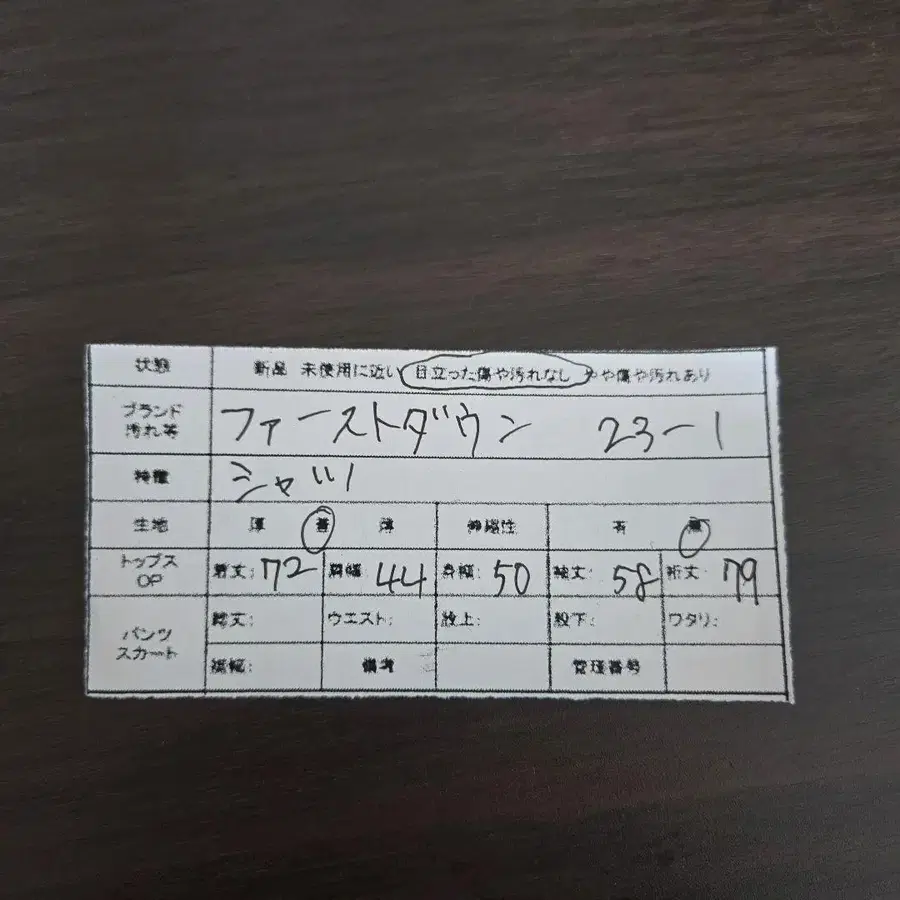 状態 新品 未使用に近い 目立った傷や汚れなし やや傷や汚れあり
ブランド 汚れ等 ファーストダウン 23-1
特徴 シャツ
生地 厚 普 薄 伸縮性 有 無
トップス OP 着丈: 72 肩幅: 44 身幅: 50 袖丈: 58 裄丈: 79
パンツ スカート 総丈: ウエスト: 股上: 股下: ワタリ:
裾幅: 備考 管理番号